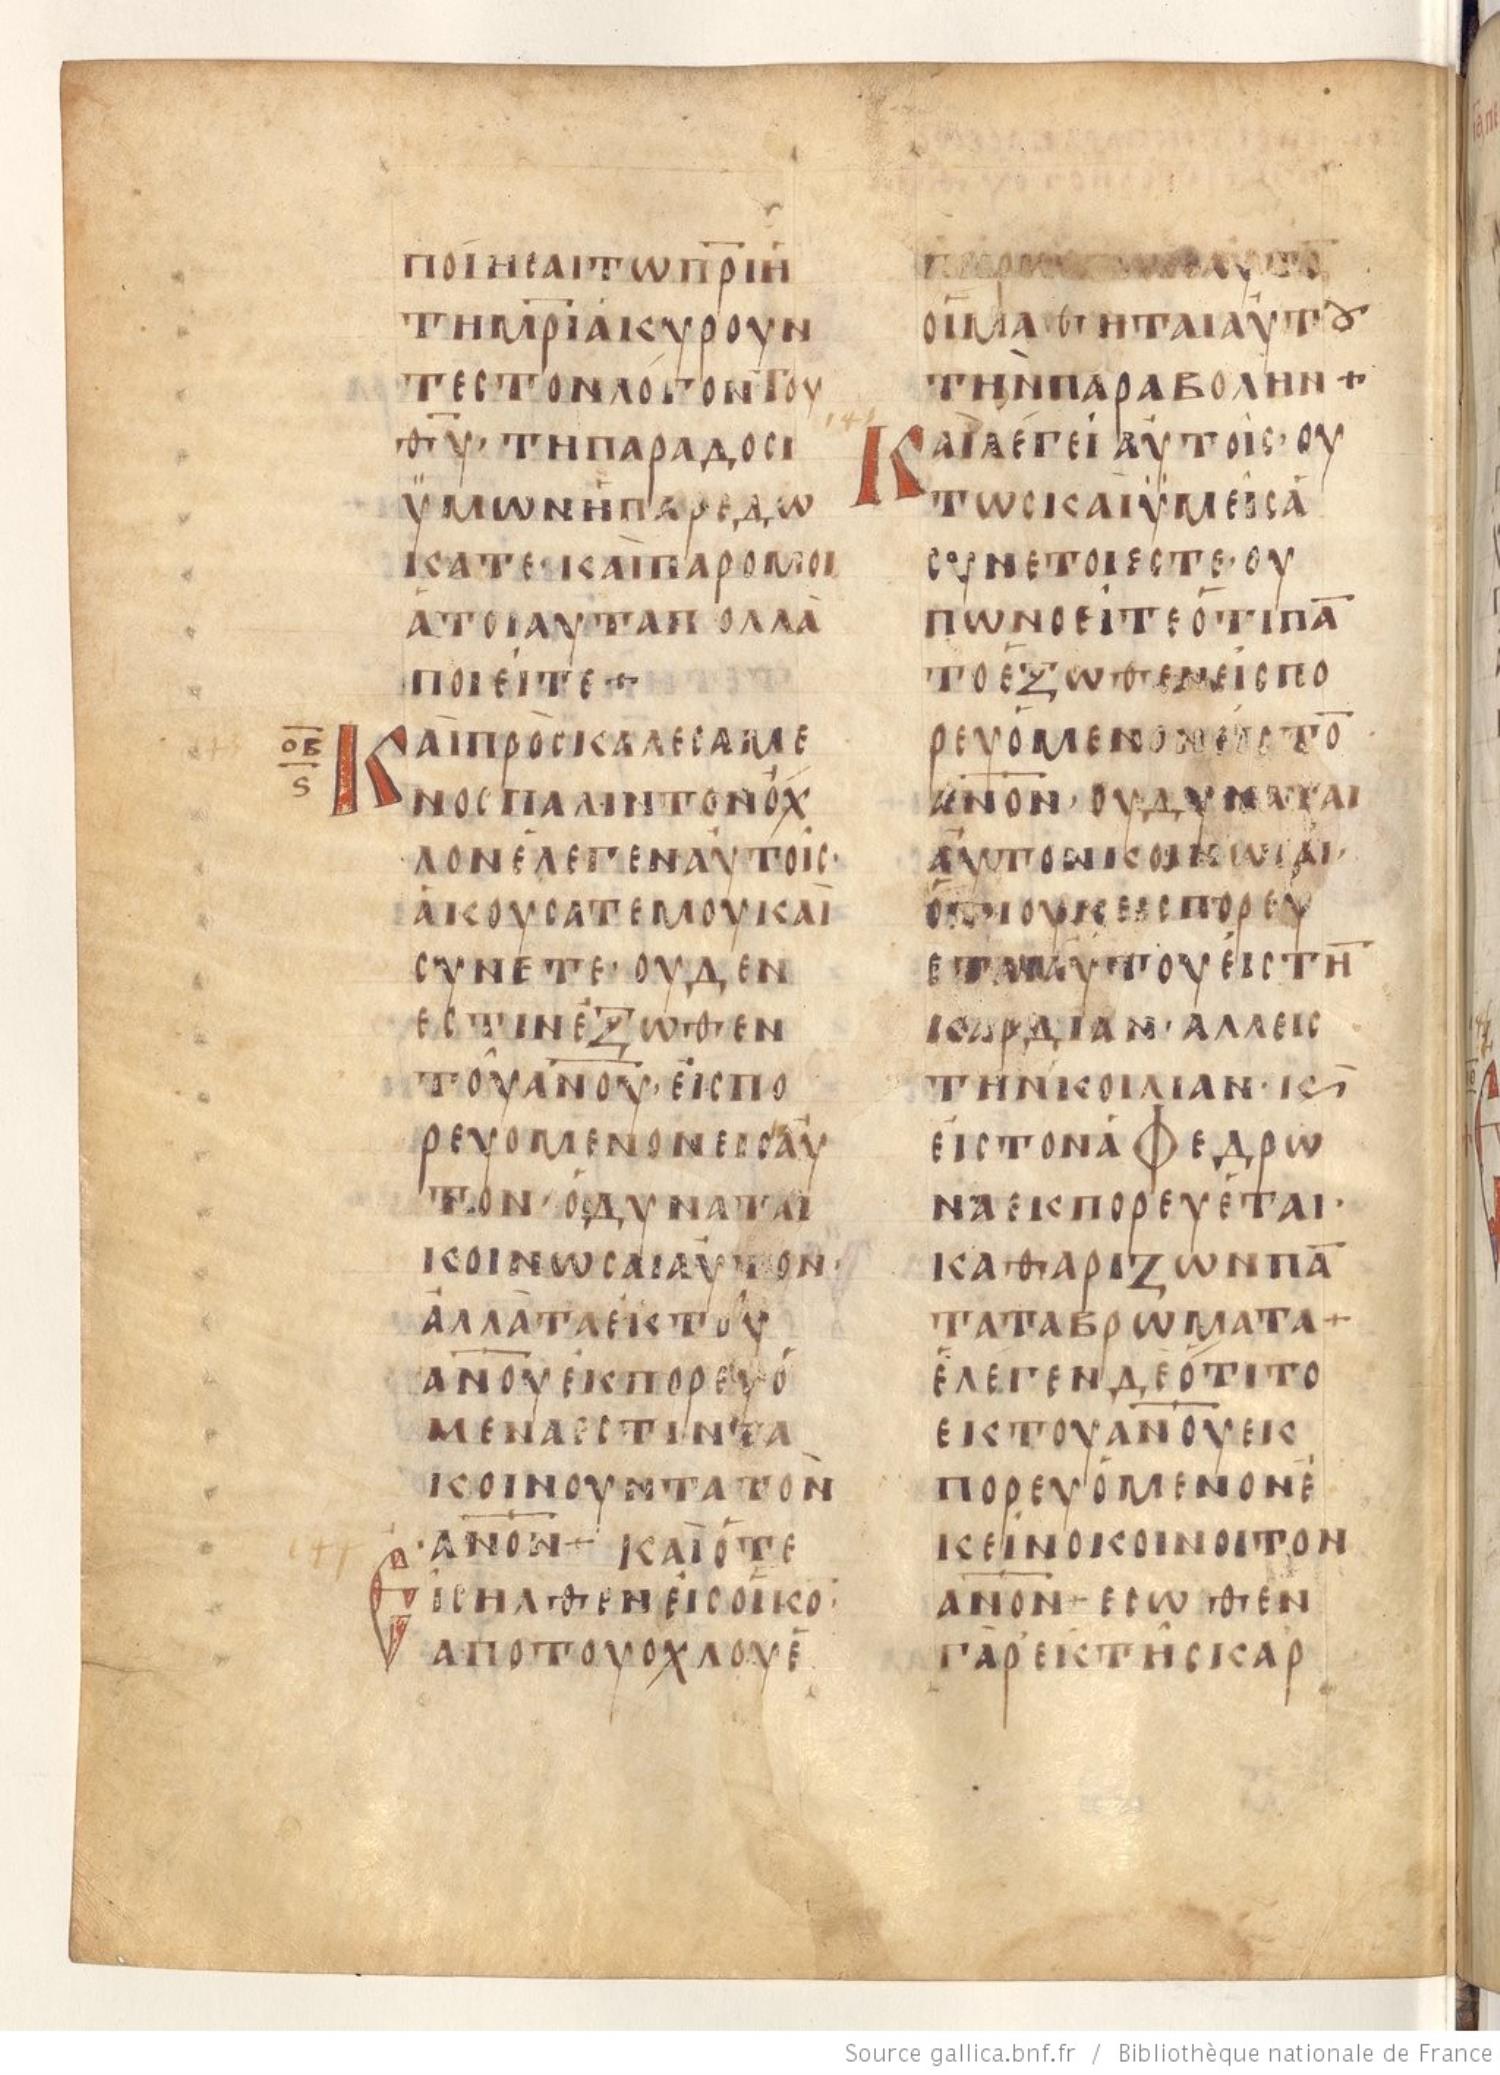 ΠΟΙΗCΑΙΤΩΠ̅Ρ̅ΙΗ
ΤΗΜ̅Ρ̅ΙΑΚΥΡΟΥΝ
ΤΕCΤΟΝΛΟΓΟΝΤΟΥ
Θ̅Υ̅· ΤΗΠΑΡΑΔΟCΙ
ΫΜΩΝΗΠΑΡΕΔΩ
ΚΑΤΕ· ΚΑΙΠΑΡΟΜΟΙ
ΑΤΟΙΑΥΤΑΠΟΛΛΑ
ΠΟΙΕΙΤΕ+
Ο̅Β̅
Ϛ
ΚΑΙΠΡΟCΚΑΛΕCΑΜΕ
ΝΟCΠΑΛΙΝΤΟΝΟΧ
ΛΟΝΕΛΕΓΕΝΑΥΤΟΙC·
ΑΚΟΥCΑΤΕΜΟΥΚΑΙ
CΥΝΕΤΕ· ΟΥΔΕΝ
ΕCΤΙΝΕΞΩΘΕΝ
ΤΟΥΑ̅Ν̅Ο̅Υ̅· ΕΙCΠΟ
ΡΕΥΟΜΕΝΟΝΕΙCΑΥ
ΤΟΝ· ΟΔΥΝΑΤΑΙ
ΚΟΙΝΩCΑΙΑΥΤΟΝ·
ΑΛΛΑΤΑΕΚΤΟΥ
Α̅Ν̅Ο̅Υ̅ΕΚΠΟΡΕΥΟ
ΜΕΝΑΕCΤΙΝΤΑ
ΚΟΙΝΟΥΝΤΑΤΟΝ
Α̅Ν̅Ο̅Ν̅+ ΚΑΙΟΤΕ
ΕΙCΗΛΘΕΝΕΙCΟΙΚΟ̅
ΑΠΟΤΟΥΟΧΛΟΥΕ
ΑΥΤΟ̅
ΟΙΜΑΘΗΤΑΙΑΥΤȢ
ΤΗΝΠΑΡΑΒΟΛΗΝ+
ΚΑΙΛΕΓΕΙΑΥΤΟΙC· ΟΥ
ΤΩCΚΑΙΫΜΕΙCΑ
CΥΝΕΤΟΙΕCΤΕ· ΟΥ
ΠΩΝΟΕΙΤΕΟΤΙΠΑ̅
ΤΟΕΞΩΘΕΝΕΙCΠΟ
ΡΕΥΟΜΕΝΟΝΕΙCΤΟ̅
Α̅Ν̅Ο̅Ν̅· ΟΥΔΥΝΑΤΑΙ
ΑΥΤΟΝΚΟΙΝΩCΑΙ·
ΟΤΙΟΥΚΕΙCΠΟΡΕΥ
ΕΤΑΙΑΥΤΟΥΕΙCΤΗ̅
ΚΑΡΔΙΑΝ· ΑΛΛΕΙC
ΤΗΝΚΟΙΛΙΑΝ· Κϛ
ΕΙCΤΟΝΑΦΕΔΡΩ
ΝΑΕΚΠΟΡΕΥΕΤΑΙ·
ΚΑΘΑΡΙΖΩΝΠΑ̅
ΤΑΤΑΒΡΩΜΑΤΑ+
ΕΛΕΓΕΝΔΕΟΤΙΤΟ
ΕΚΤΟΥΑ̅Ν̅Ο̅Υ̅ΕΚ
ΠΟΡΕΥΟΜΕΝΟΝΕ
ΚΕΙΝΟΚΟΙΝΟΙΤΟΝ
Α̅Ν̅Ο̅Ν̅+ ΕCΩΘΕΝ
ΓΑΡΕΚΤΗCΚΑΡ
Source gallica.bnf.fr / Bibliothèque nationale de France